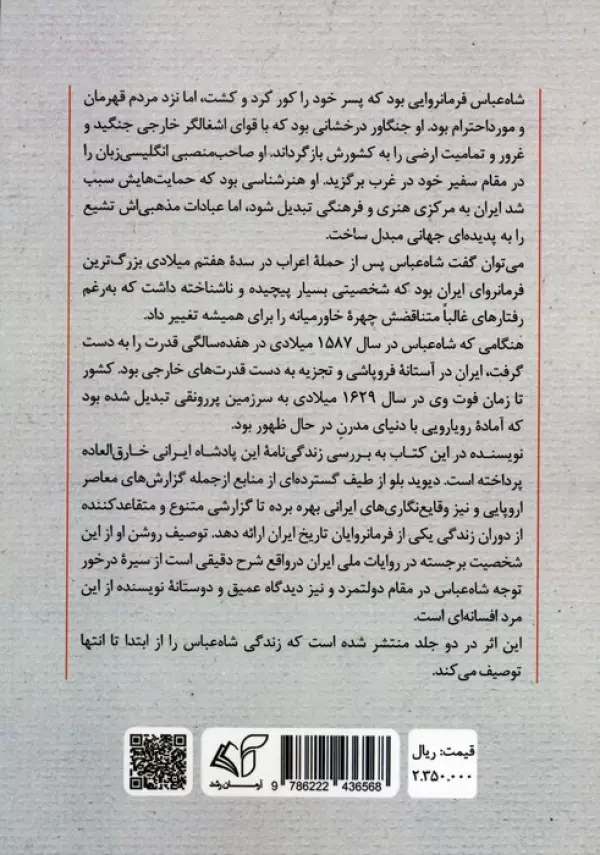 شاه‌عباس فرمانروایی بود که پسر خود را کور کرد و کشت، اما نزد مردم قهرمان
و مورداحترام بود. او جنگاور درخشانی بود که با قوای اشغالگر خارجی جنگید و
غرور و تمامیت ارضی را به کشورش بازگرداند. او صاحب‌منصبی انگلیسی‌زبان را
در مقام سفیر خود در غرب برگزید. او هنرشناسی بود که حمایت‌هایش سبب
شد ایران به مرکزی هنری و فرهنگی تبدیل شود، اما عبادات مذهبی‌اش تشیع
را به پدیده‌ای جهانی مبدل ساخت.
می‌توان گفت شاه‌عباس پس از حملهٔ اعراب در سدهٔ هفتم میلادی بزرگ‌ترین
فرمانروای ایران بود که شخصیتی بسیار پیچیده و ناشناخته داشت که به‌رغم
رفتارهای غالباً متناقضش چهرهٔ خاورمیانه را برای همیشه تغییر داد.
هنگامی که شاه‌عباس در سال ۱۵۸۷ میلادی در هفده‌سالگی قدرت را به دست
گرفت، ایران در آستانهٔ فروپاشی و تجزیه به دست قدرت‌های خارجی بود. کشور
تا زمان فوت وی در سال ۱۶۲۹ میلادی به سرزمین پررونقی تبدیل شده بود
که آمادهٔ رویارویی با دنیای مدرن در حال ظهور بود.
نویسنده در این کتاب به بررسی زندگی‌نامهٔ این پادشاه ایرانی خارق‌العاده
پرداخته است. دیوید بلو از طیف گسترده‌ای از منابع ازجمله گزارش‌های معاصر
اروپایی و نیز وقایع‌نگاری‌های ایرانی بهره برده تا گزارشی متنوع و متقاعدکننده
از دوران زندگی یکی از فرمانروایان تاریخ ایران ارائه دهد. توصیف روشن او از این
شخصیت برجسته در روایات ملی ایران درواقع شرح دقیقی است از سیرهٔ درخور
توجه شاه‌عباس در مقام دولتمرد و نیز دیدگاه عمیق و دوستانهٔ نویسنده از این
مرد افسانه‌ای است.
این اثر در دو جلد منتشر شده است که زندگی شاه‌عباس را از ابتدا تا انتها
توصیف می‌کند.
قیمت: ریال
۲.۳۵۰.۰۰۰
9 786222 436568
آرمان رشد